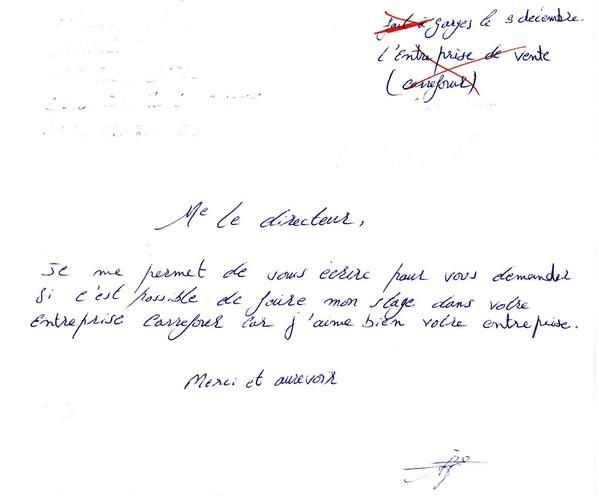 fait à garges le 3 décembre.
l'Entreprise de vente
(carrefour)
Me le directeur,
Je me permet de vous écrire pour vous demander
si c'est possible de faire mon stage dans votre
Entreprise Carrefour car j'aime bien votre entreprise.
Merci et aurevoir